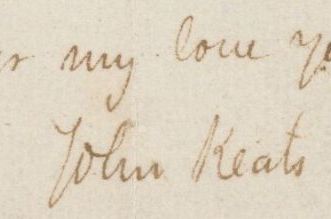 my love
John Keats